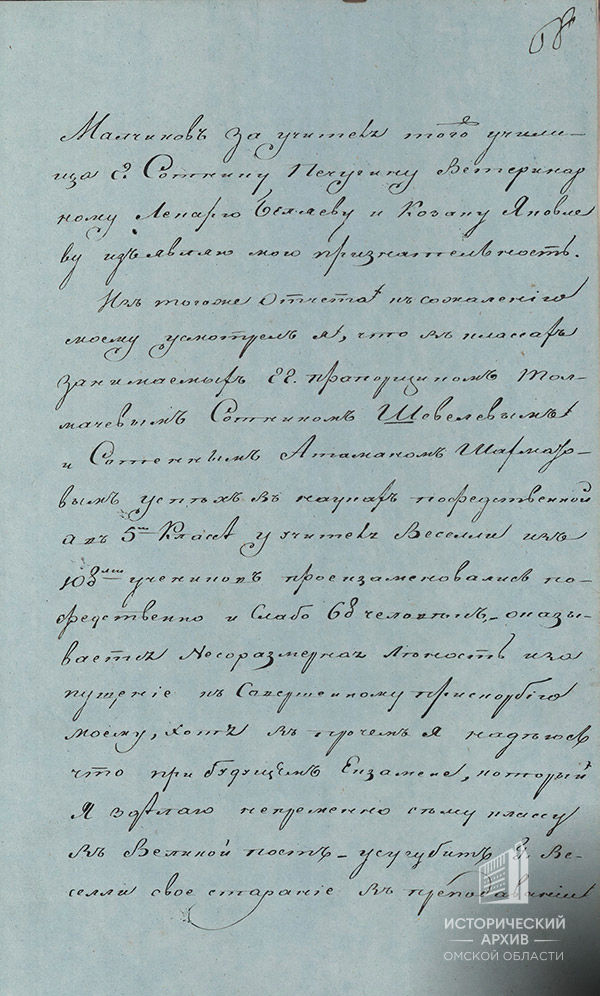 68
Малчиковъ за учителя того учили-
ща г. Сотнину Пичугину Ветеринар
ному Лекарю Беляеву и Козаку Яковле
ву изъявляю мою признательность.
Изъ тогоже Отчета къ сожаленію
моему усмотрелъ я, что въ классах
занимаемых гг. прапорщикомъ Тол-
мачевымъ Сотникомъ Шевелевымъ
и Сотеннымъ Атаманомъ Шахмато-
вымъ успѣхъ въ наукахъ посредственной
а въ 5м Классѣ учителя Веселли изъ
ученико въ проекзаменовались по-
средственно и Слабо 68 человѣкъ, оказы-
вается Несоразмерная Лѣность и за
пущеніе къ Савершенному прискорбію
моему, хотя въ прочемъ Я надѣюсь
что при будущемъ Екзамене, который
Я здѣлаю непременно сѣму классу
въ Великой постъ усугубитъ г. Ве-
селли свое стараніе въ преподаваніи
ИСТОРИЧЕСКИЙ
АРХИВ
ОМСКОЙ ОБЛАСТИ